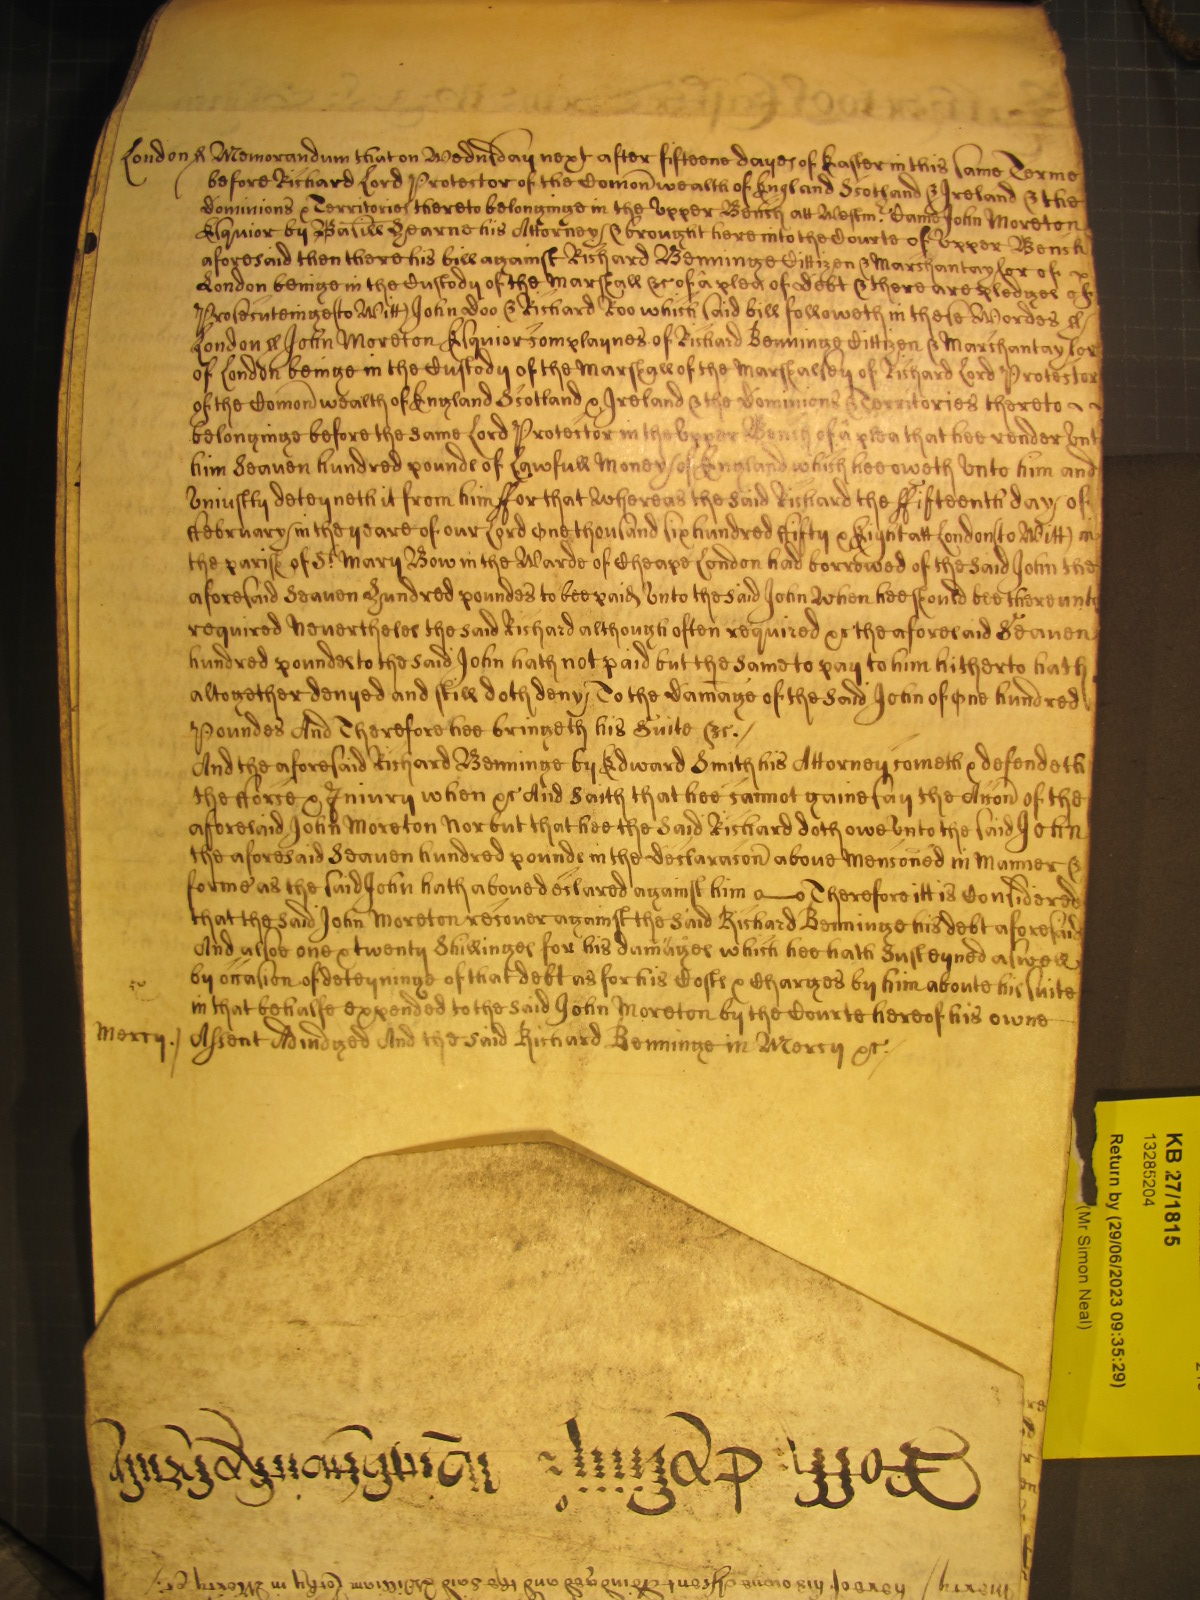 London ss Memorandum that on Wednesday next after fifteene dayes of Easter in this same Terme
before Richard Lord Protector of the Com̄on wealth of England Scotland & Ireland & the
Dominions & Territories thereto belonginge in the Upper Bench att Westmr. Came John Moreton
Esquior by Basill Hearne his Attorney & brought here into the Courte of Upper Bench
aforesaid then there his bill against Richard Benninge Cittizen & Marchantaylor of
London beinge in the Custody of the Marshall &c of a plea of debt & there are pledges of
Prosecuteinge (to Witt) John Doo & Richard Roo which said bill followeth in these Wordes ss/
London ss John Moreton Esquior complaynes of Richard Benninge Cittizen & Marchantaylor
of London beinge in the Custody of the Marshall of the Marshalsey of Richard Lord Protector
of the Com̄on wealth of England Scotland & Ireland & the Dominions & Territories thereto
belonginge before the same Lord Protector in the Upper Bench of a plea that hee render Unto
him Seaven hundred pounds of Lawfull Money of England which hee oweth Unto him and
Uniustly deteyneth it from him ffor that Whereas the said Richard the ffifteenth day of
ffebruary in the yeare of our Lord One thousand six hundred ffifty & Eight att London (to Witt) in
the parish of St. Mary Bow in the Warde of Cheape London had borrowed of the said John the
aforesaid Seaven Hundred poundes to bee paid Unto the said John When hee should bee thereunto
required Nevertheles the said Richard although often required &c the aforesaid Seaven
hundred poundes to the said John hath not paid but the same to pay to him hitherto hath
altogether denyed and still doth deny To the Damage of the said John of One hundred
Poundes And Therefore hee bringeth his Suite &c./
And the aforesaid Richard Benninge by Edward Smith his Attorney cometh & defendeth
the fforce & Iniury when &c And Saith that hee cannot gainesay the Acc̄on of the
aforesaid John Moreton Nor but that hee the Said Richard doth owe Unto the said John
the aforesaid Seaven hundred pounds in the Declarac̄on above Menc̄oned in Manner &
forme as the said John hath above declared against him Therefore itt is Considered
that the Said John Moreton recover against the Said Richard Benninge his debt aforesaid
And alsoe one & twenty Shillinges for his damages which hee hath Susteyned aswell
by occasion of deteyninge of that debt as for his Costs & Charges by him aboute his suite
in that behalfe expended to the Said John Moreton by the Courte here of his owne
Mercy./ Assent Adiudged And the said Richard Benninge in Mercy &c./
KB 27/1815
13285204
Return by (29/06/2023 09:35:29)
(Mr Simon Neal)
Mercy / hereof his owne Assent Adiudged and the Said William in Mercy &c